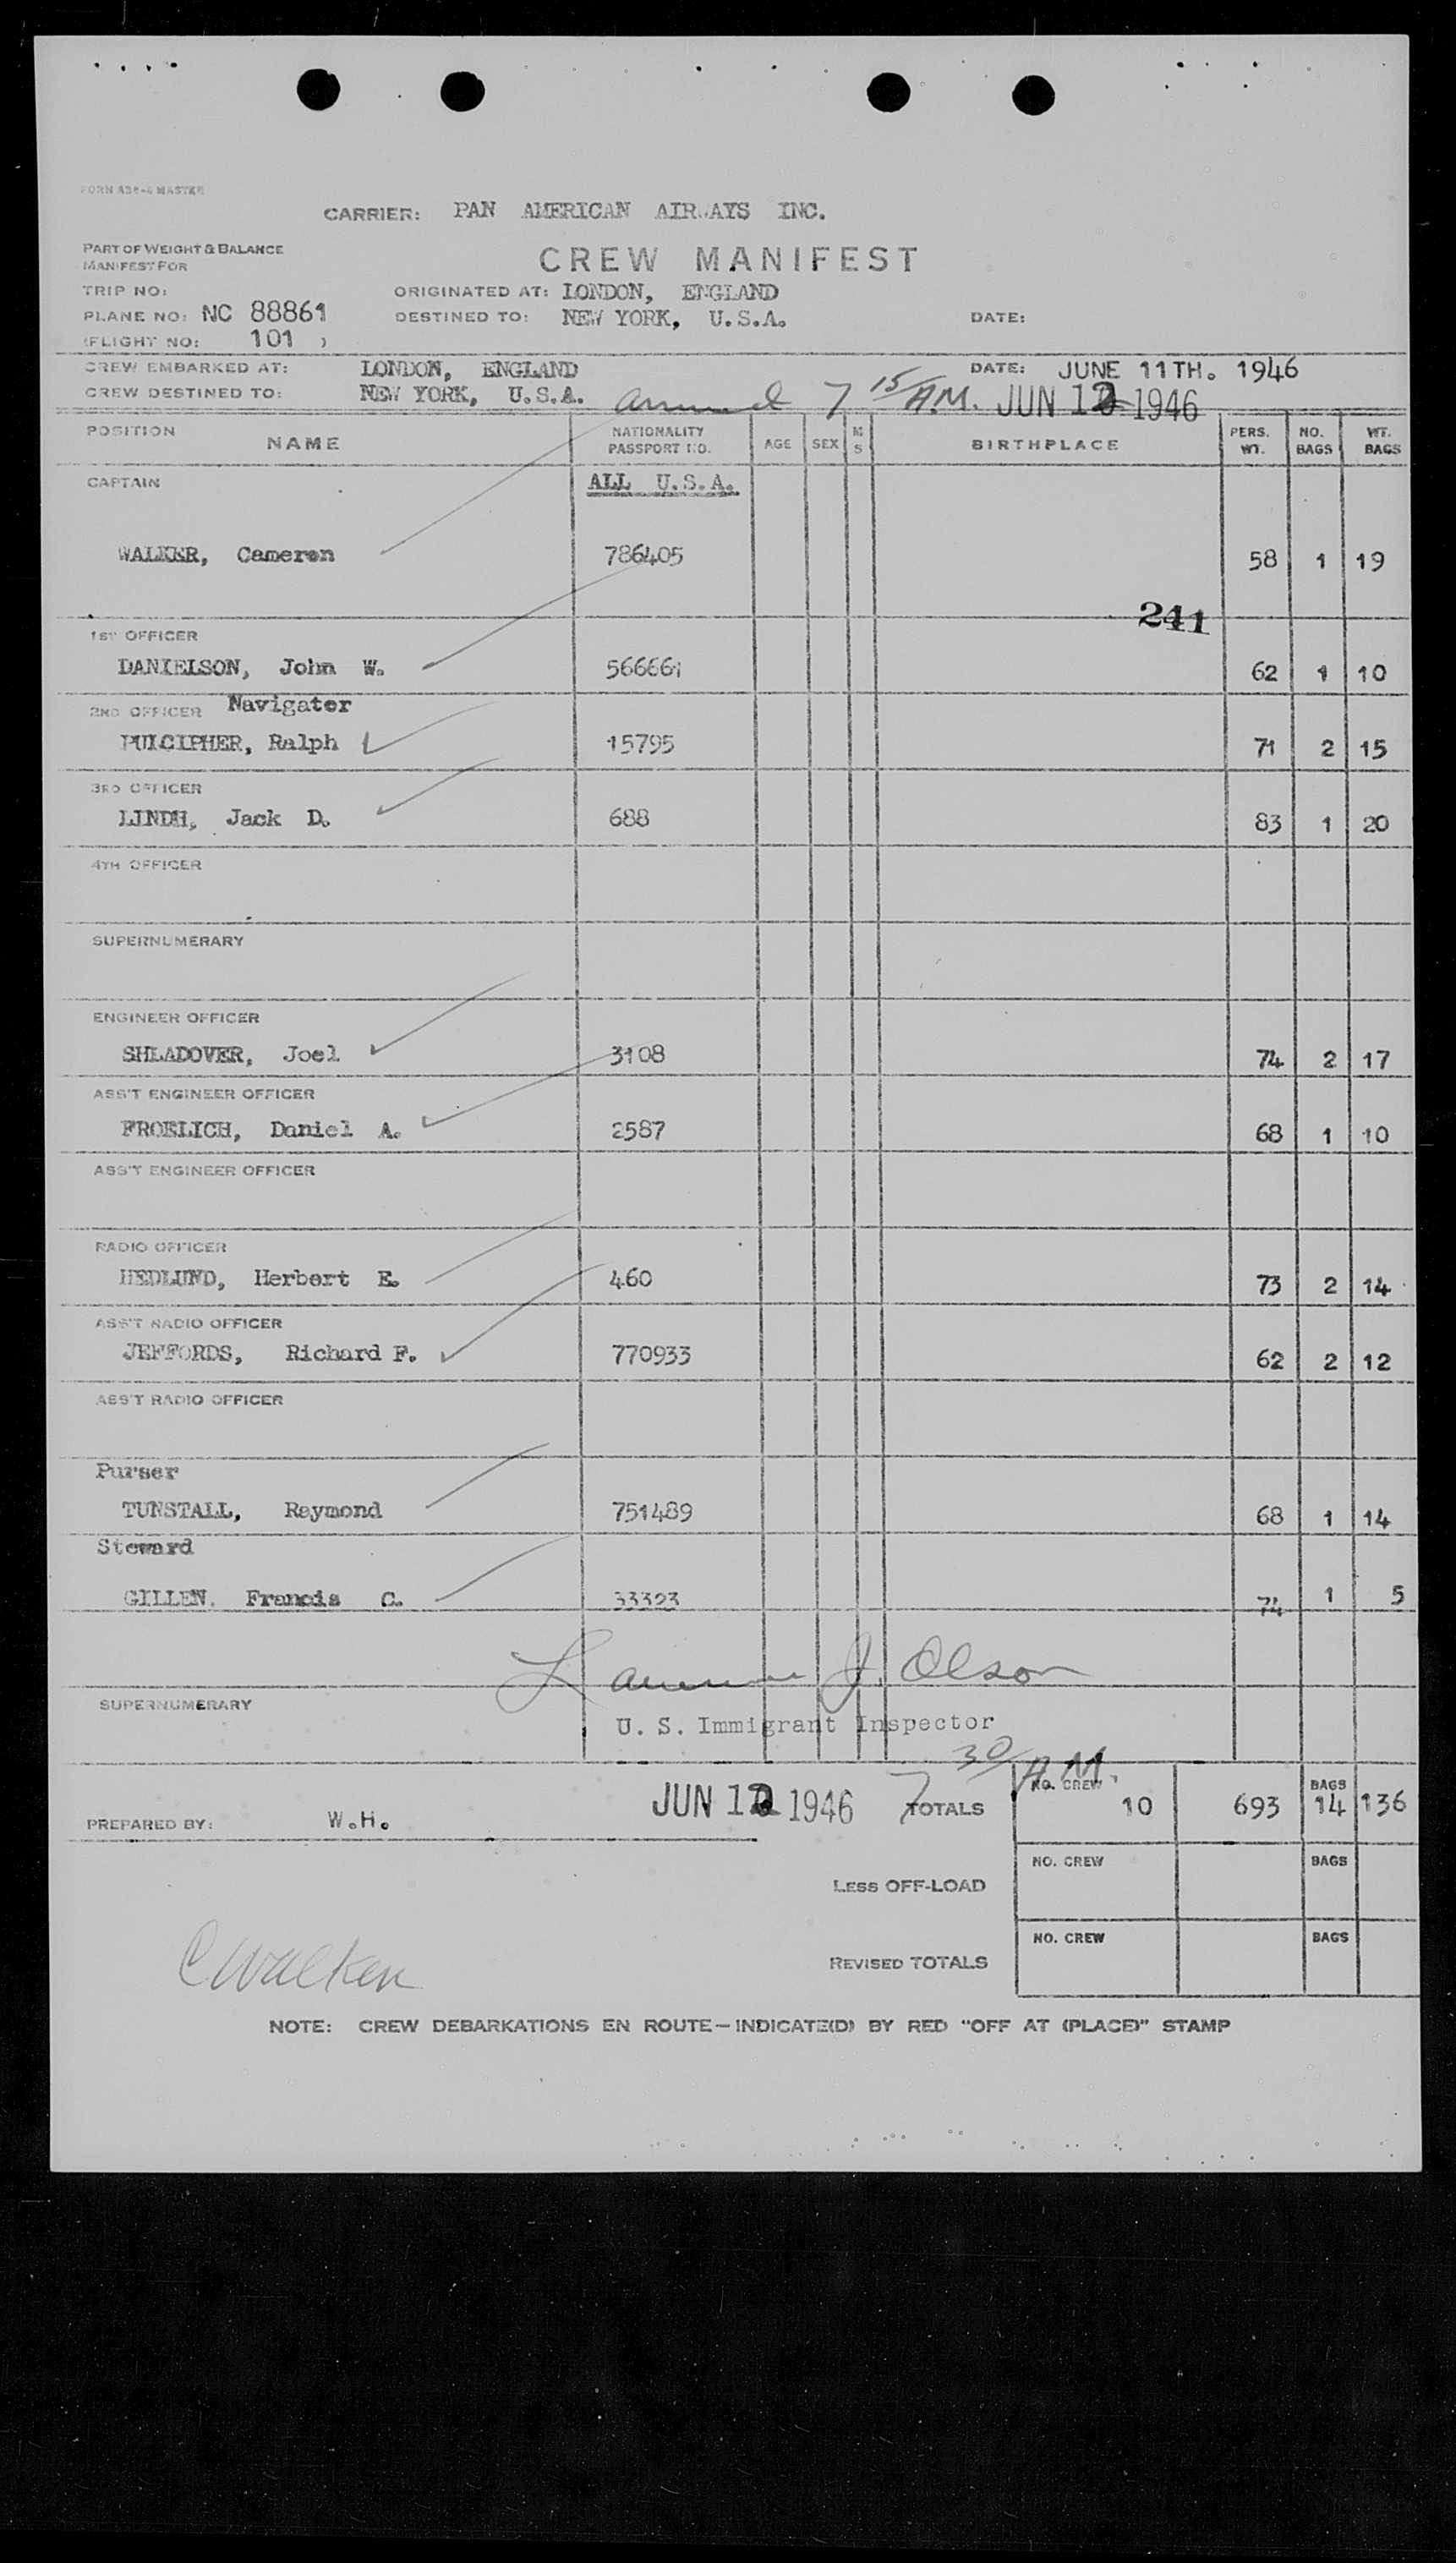 FORM ASB-6 MASTER
CARRIER: PAN AMERICAN AIRWAYS INC.
PART OF WEIGHT & BALANCE
MANIFEST FOR
CREW MANIFEST
TRIP NO:
ORIGINATED AT: LONDON, ENGLAND
PLANE NO: NC 88861
DESTINED TO: NEW YORK, U.S.A. DATE:
(FLIGHT NO: 101 )
CREW EMBARKED AT: LONDON, ENGLAND DATE: JUNE 11TH. 1946
CREW DESTINED TO: NEW YORK, U.S.A. arrived 7 15/A.M. JUN 12 1946
POSITION NAME NATIONALITY PASSPORT NO. AGE SEX M S BIRTHPLACE PERS. WT. NO. BAGS WT. BAGS
CAPTAIN ALL U.S.A.
WALKER, Cameron 786405 58 1 19
241
1ST OFFICER
DANIELSON, John W. 566661 62 1 10
2ND OFFICER Navigater
PULCIPHER, Ralph 15795 71 2 15
3RD OFFICER
LINDH, Jack D. 688 83 1 20
4TH OFFICER
SUPERNUMERARY
ENGINEER OFFICER
SHLADOVER, Joel 3108 74 2 17
ASS'T ENGINEER OFFICER
FROELICH, Daniel A. 2587 68 1 10
ASS'T ENGINEER OFFICER
RADIO OFFICER
HEDLUND, Herbert E. 460 73 2 14
ASS'T RADIO OFFICER
JEFFORDS, Richard F. 770933 62 2 12
ASS'T RADIO OFFICER
Purser
TUNSTALL, Raymond 751489 68 1 14
Steward
GILLEN, Francis C. 33323 74 1 5
Lawrence J. Olson
SUPERNUMERARY
U. S. Immigrant Inspector
7 30/A.M.
PREPARED BY: W.H. JUN 12 1946 TOTALS NO. CREW 10 693 BAGS 14 136
LESS OFF-LOAD NO. CREW BAGS
C Walker
REVISED TOTALS NO. CREW BAGS
NOTE: CREW DEBARKATIONS EN ROUTE—INDICATE(D) BY RED "OFF AT (PLACE)" STAMP